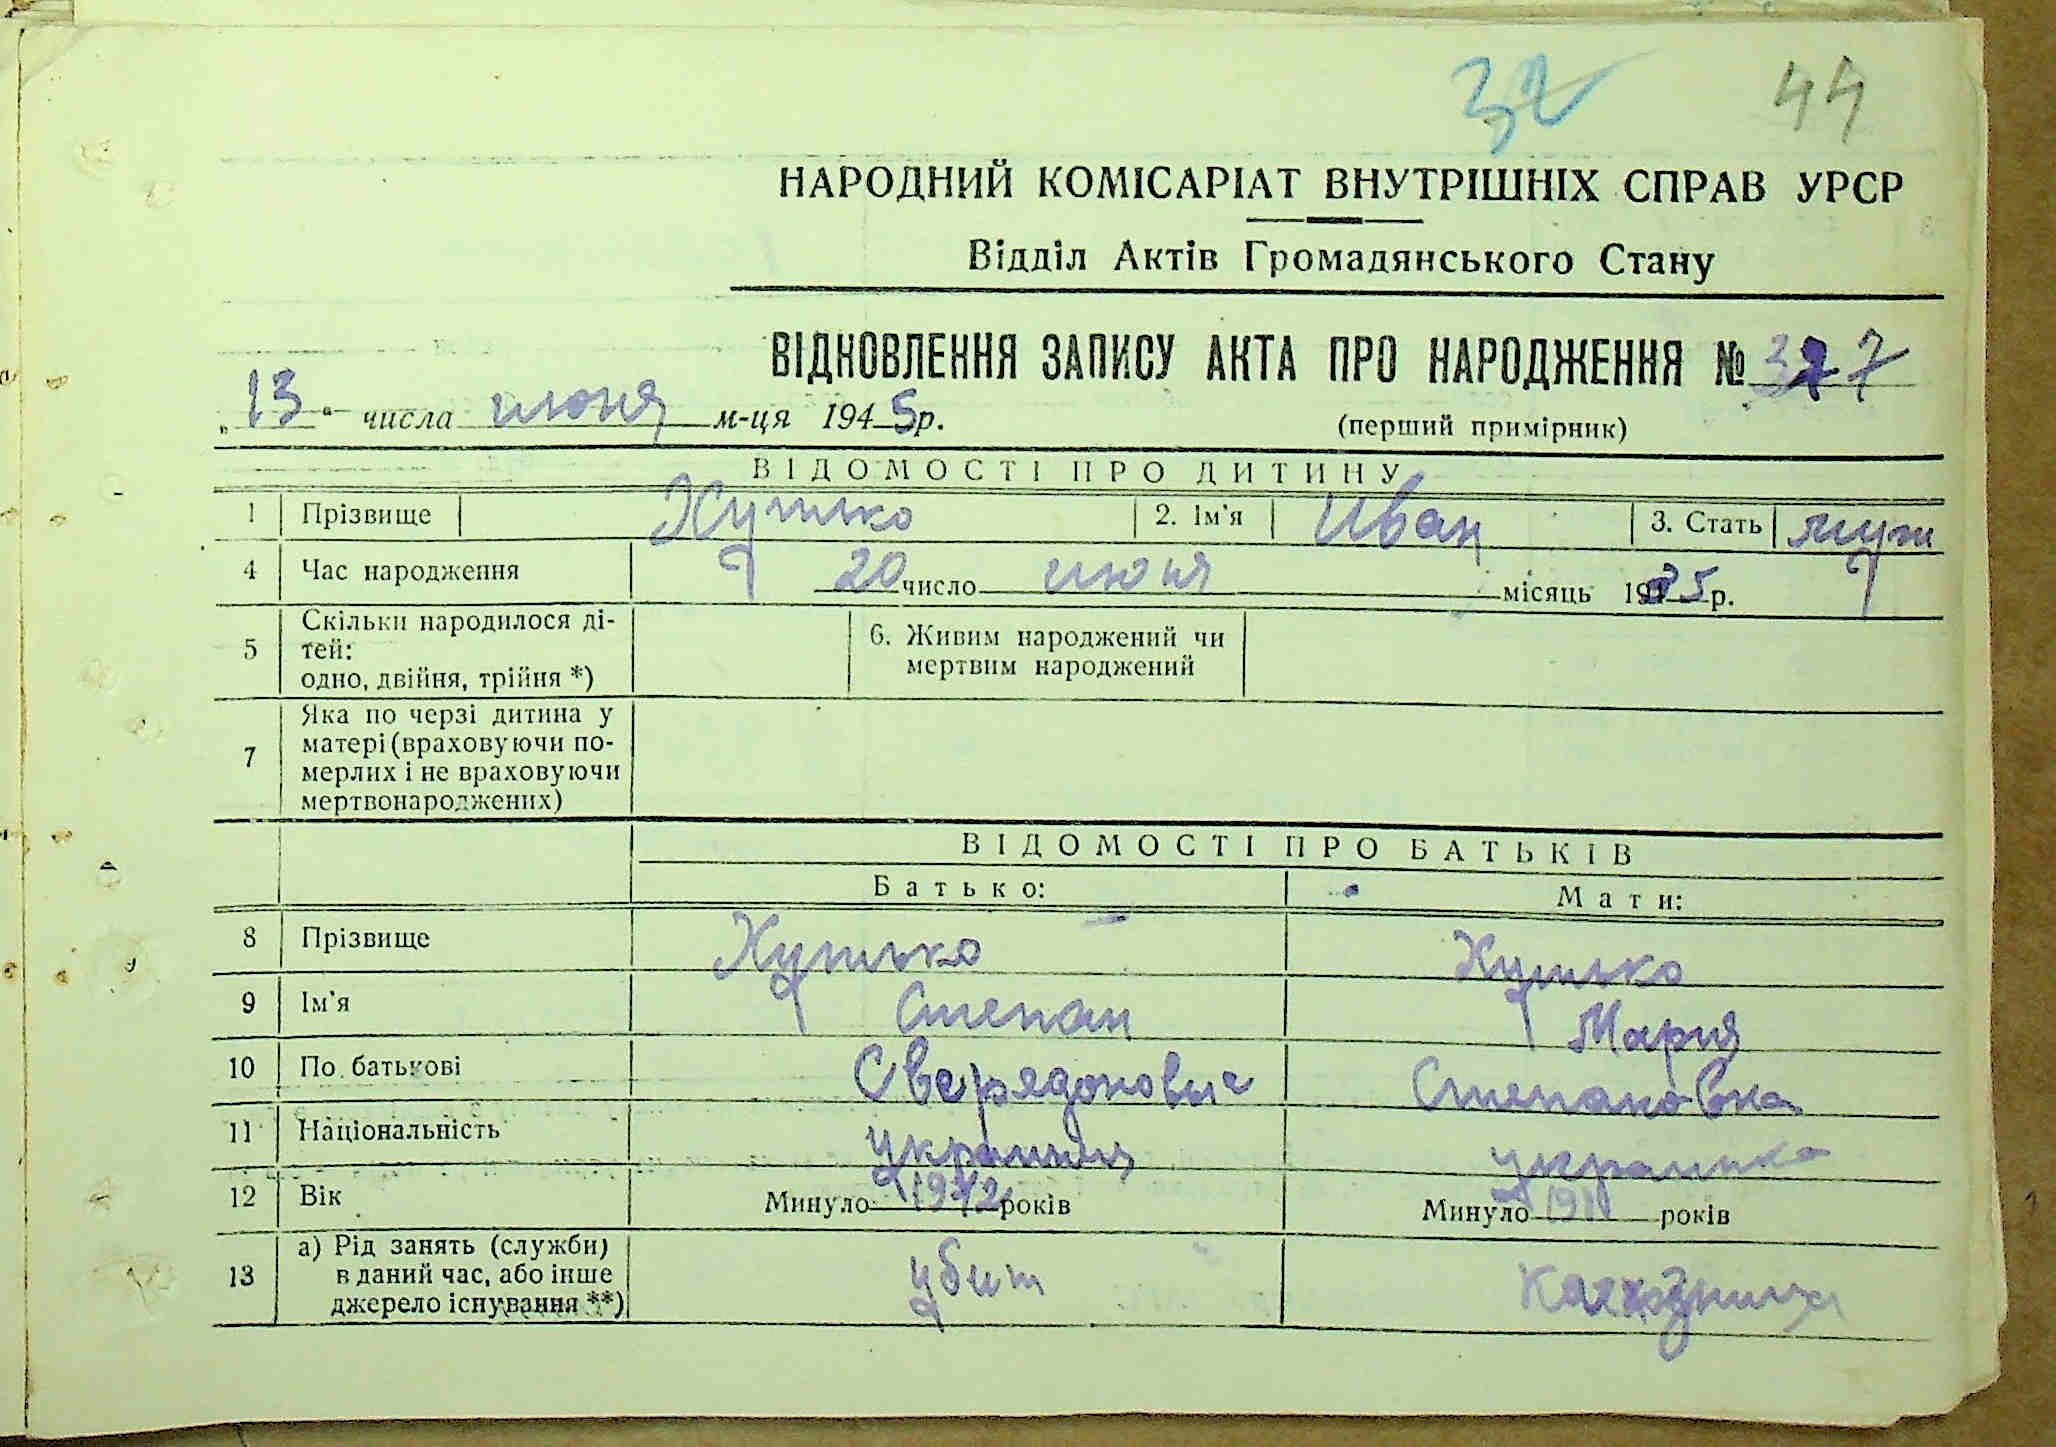 32 44
НАРОДНИЙ КОМІСАРІАТ ВНУТРІШНІХ СПРАВ УРСР
Відділ Актів Громадянського Стану
ВІДНОВЛЕННЯ ЗАПИСУ АКТА ПРО НАРОДЖЕННЯ № 327
„13“ числа июня м-ця 1945р.
(перший примірник)
ВІДОМОСТІ ПРО ДИТИНУ
1 Прізвище 2. Ім'я Иван 3. Стать муж
4 Час народження 20 число июня місяць 1935р.
5 Скільки народилося ді-
тей:
одно, двійня, трійня *)
6. Живим народжений чи
мертвим народжений
7 Яка по черзі дитина у
матері (враховуючи по-
мерлих і не враховуючи
мертвонароджених)
ВІДОМОСТІ ПРО БАТЬКІВ
Батько: Мати:
8 Прізвище
9 Ім'я Степан Мария
10 По батькові Степановна
11 Національність украинец украинка
12 Вік Минуло 1912 років Минуло 1911 років
13 а) Рід занять (служби)
в даний час, або інше
джерело існування **)
убит Колхозница